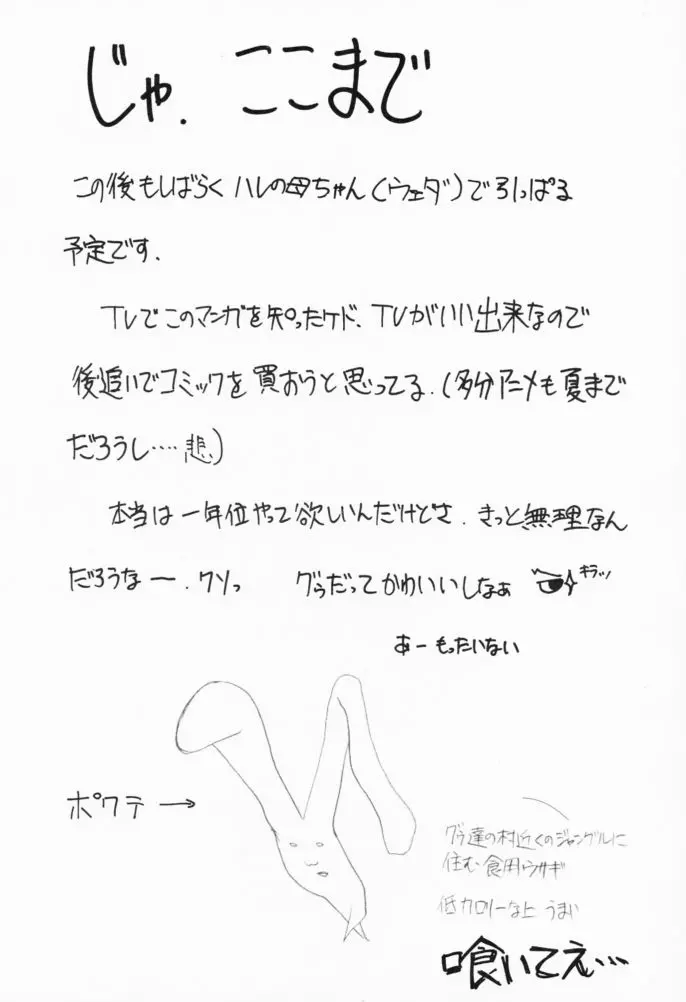 じゃ. ここまで
この後もしばらくハレの母ちゃん(ウェダ)で引っぱる
予定です.
TVでこのマンガを知ったケド、TVがいい出来なので
後追いでコミックを買おうと思ってる.(多分アニメも夏まで
だろうし‥‥悲)
本当は一年位やって欲しいんだけどさ.きっと無理なん
だろうなー.クソっ グゥだってかわいいしなぁ キラッ
あーもったいない
ポクテ→
グゥ達の村近くのジャングルに
住む食用ウサギ
低カロリーな上 うまい
喰いてえ…